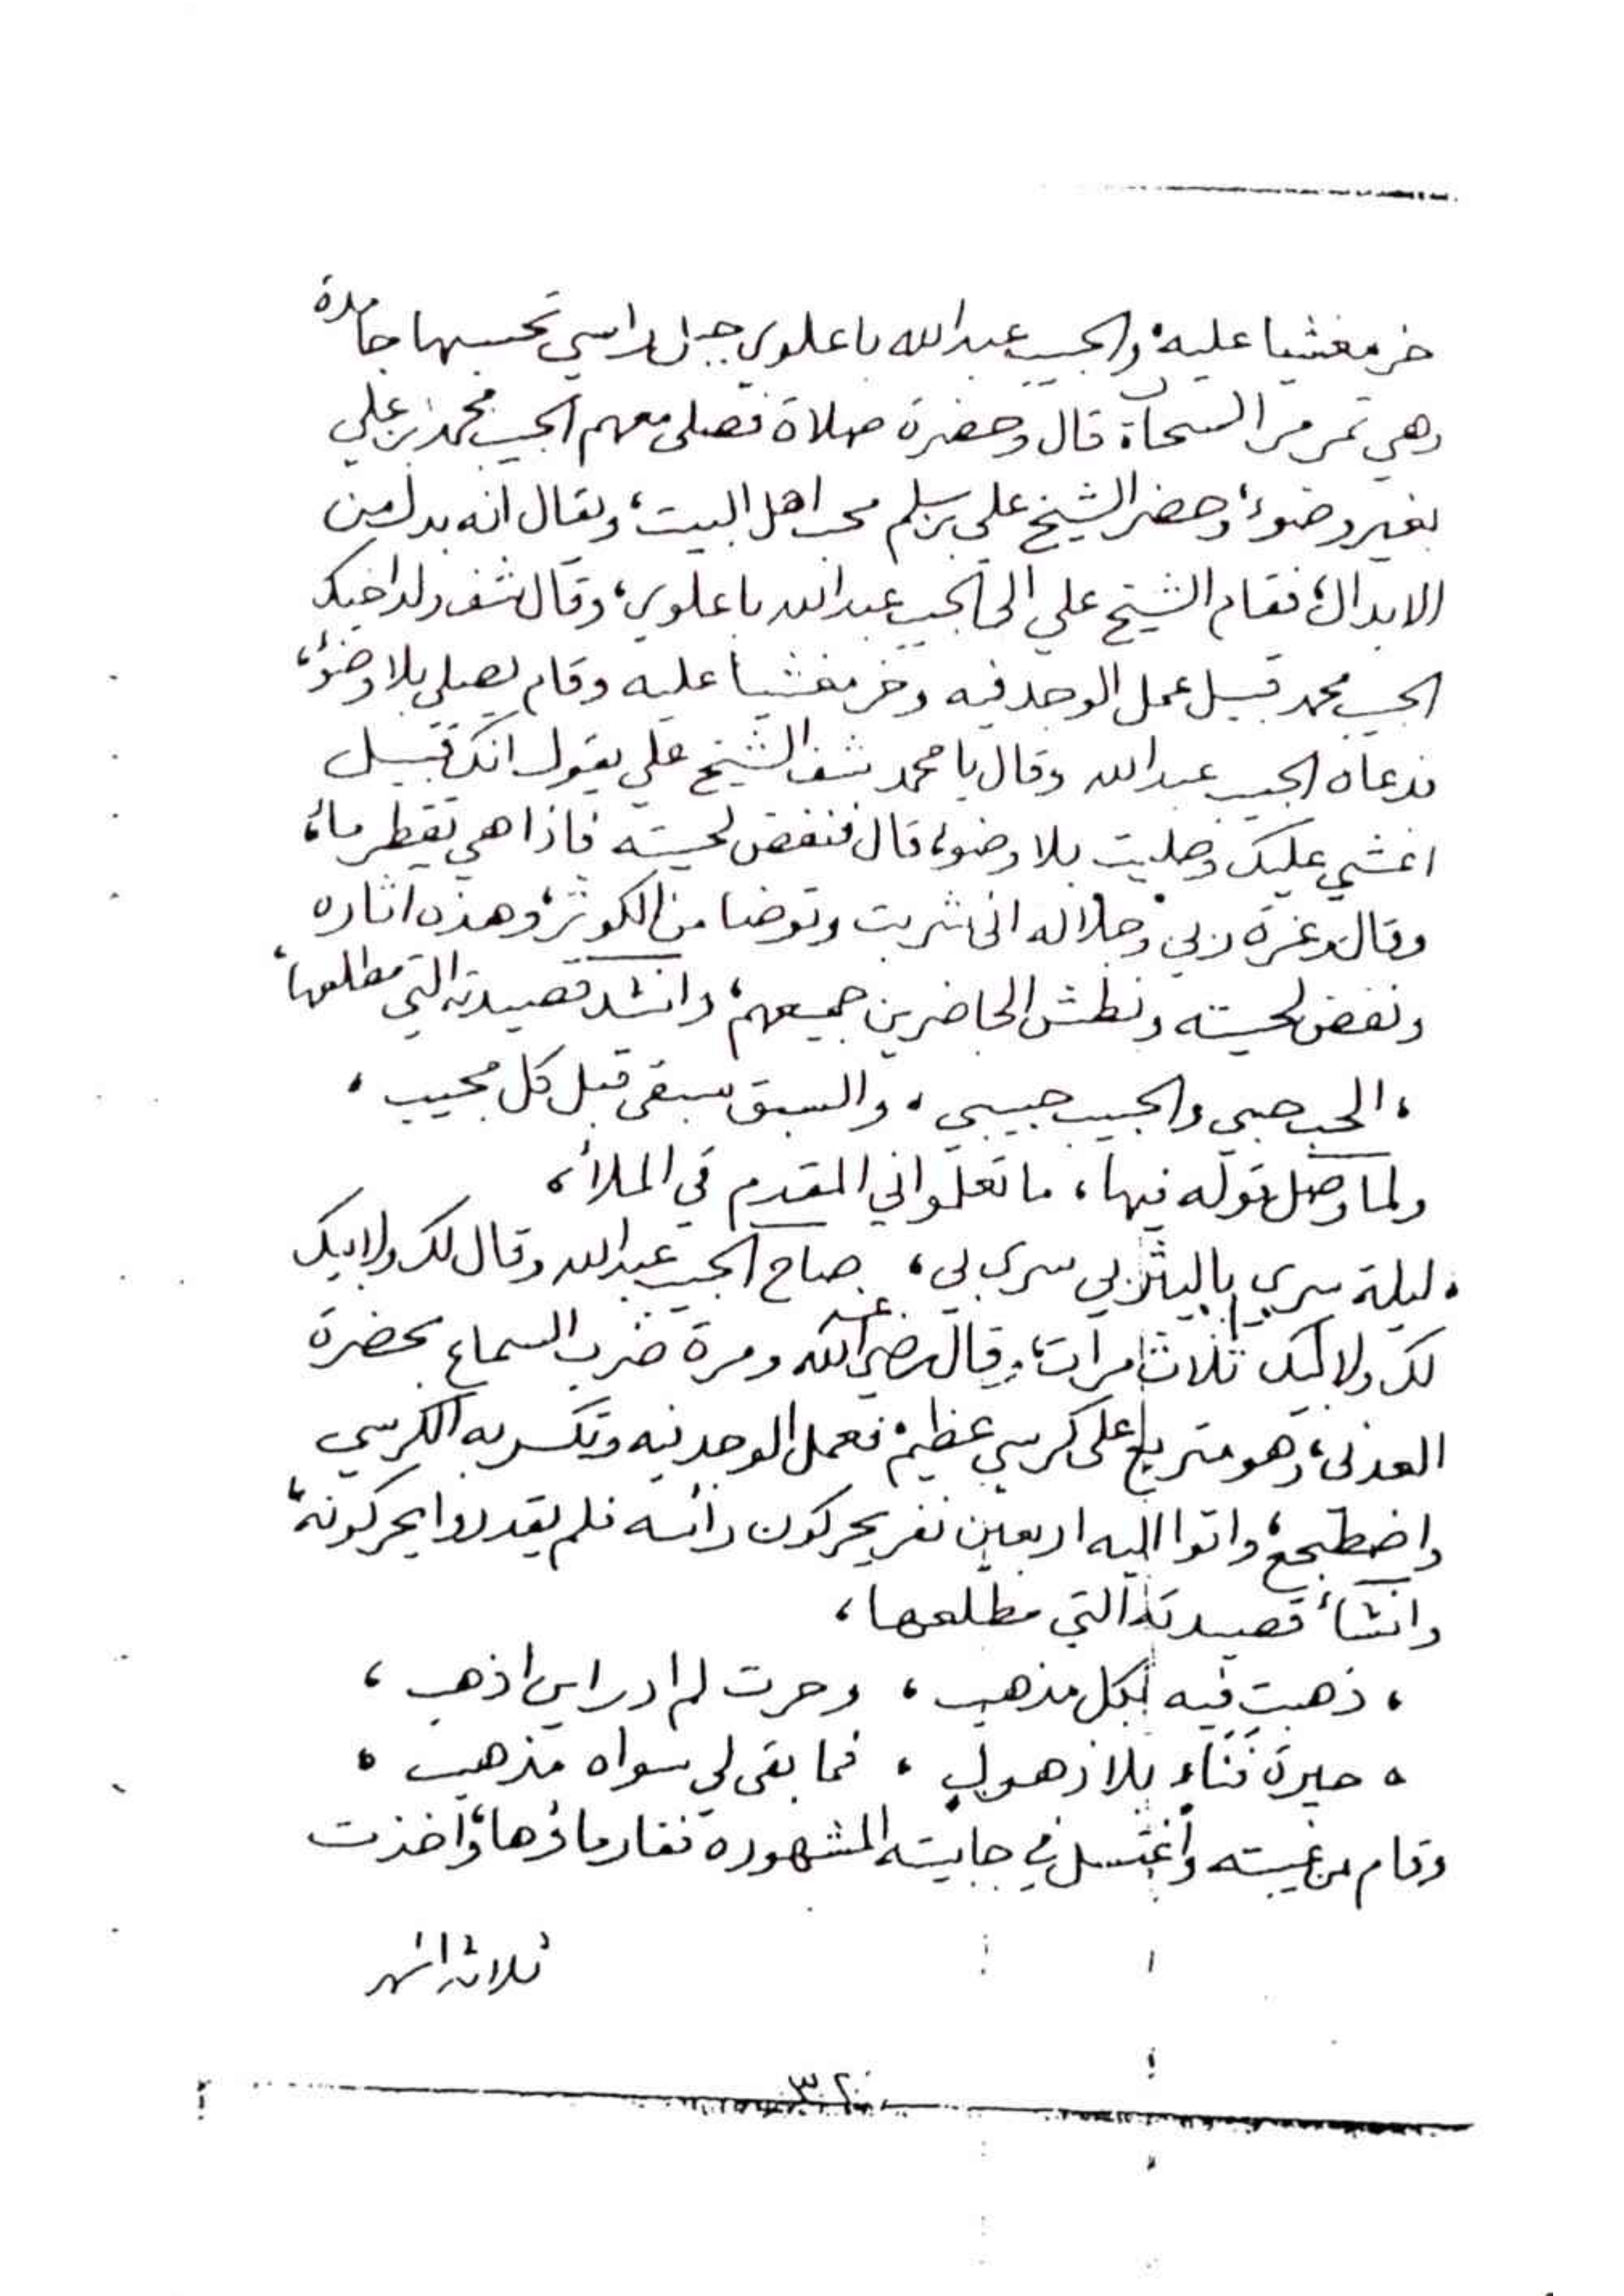 خر مغشيا عليه، والحبيب عبدالله باعلوي جبل راسي تحسبها جامدة
وهي تمر مر السحاب قال وحضرة صلاة فصلى معهم الحبيب محمد بن علي
بغير وضوء، وحضر الشيخ علي بن سلم محب اهل البيت، ويقال انه بدل من
الابدال، فقام الشيخ علي الى الحبيب عبدالله باعلوي، وقال شف ولد اخيك
الحبيب محمد قبيل عمل الوجد فيه وخر مغشيا عليه وقام يصلي بلا وضوء،
فدعاه الحبيب عبدالله وقال يا محمد شف الشيخ علي يقول انك قبيل
اغشي عليك وصليت بلا وضوء، قال فنفض لحيته فاذا هي تقطر ماء،
وقال وعزة ربي وجلاله اني شربت وتوضا من الكوثر، وهذه اثاره
ونفض لحيته ونطش الحاضرين جميعهم، وانشد قصيدته التي مطلعها،
، الحب حبي والحبيب حبيبي ، والسبق سبقي قبل كل مجيب ،
ولما وصل قوله فيها ، ما تعلموا اني المقدم في الملأ ،
، ليلة سرى باليثربي سرى بي ، صاح الحبيب عبدالله وقال لك ولابيك
لك ولابيك ثلاث مرات، وقال رضي الله عنه ومرة ضرب السماع بحضرة
العدني، وهو متربع على كرسي عظيم، فعمل الوجد فيه وتكسر به الكرسي
واضطجع، واتوا اليه اربعين نفر يحركون رأسه فلم يقدروا يحركونه،
وانشأ قصيدته التي مطلعها ،
، ذهبت فيه بكل مذهب ، وحرت لم ادر اين اذهب ،
، حيرة فناء بلا ذهول ، فما بقى لي سواه مذهب ،
وقام من غيبته واغتسل في جابيته المشهورة فغار ماؤها، واخذت
ثلاثة اشهر
٣٢٠